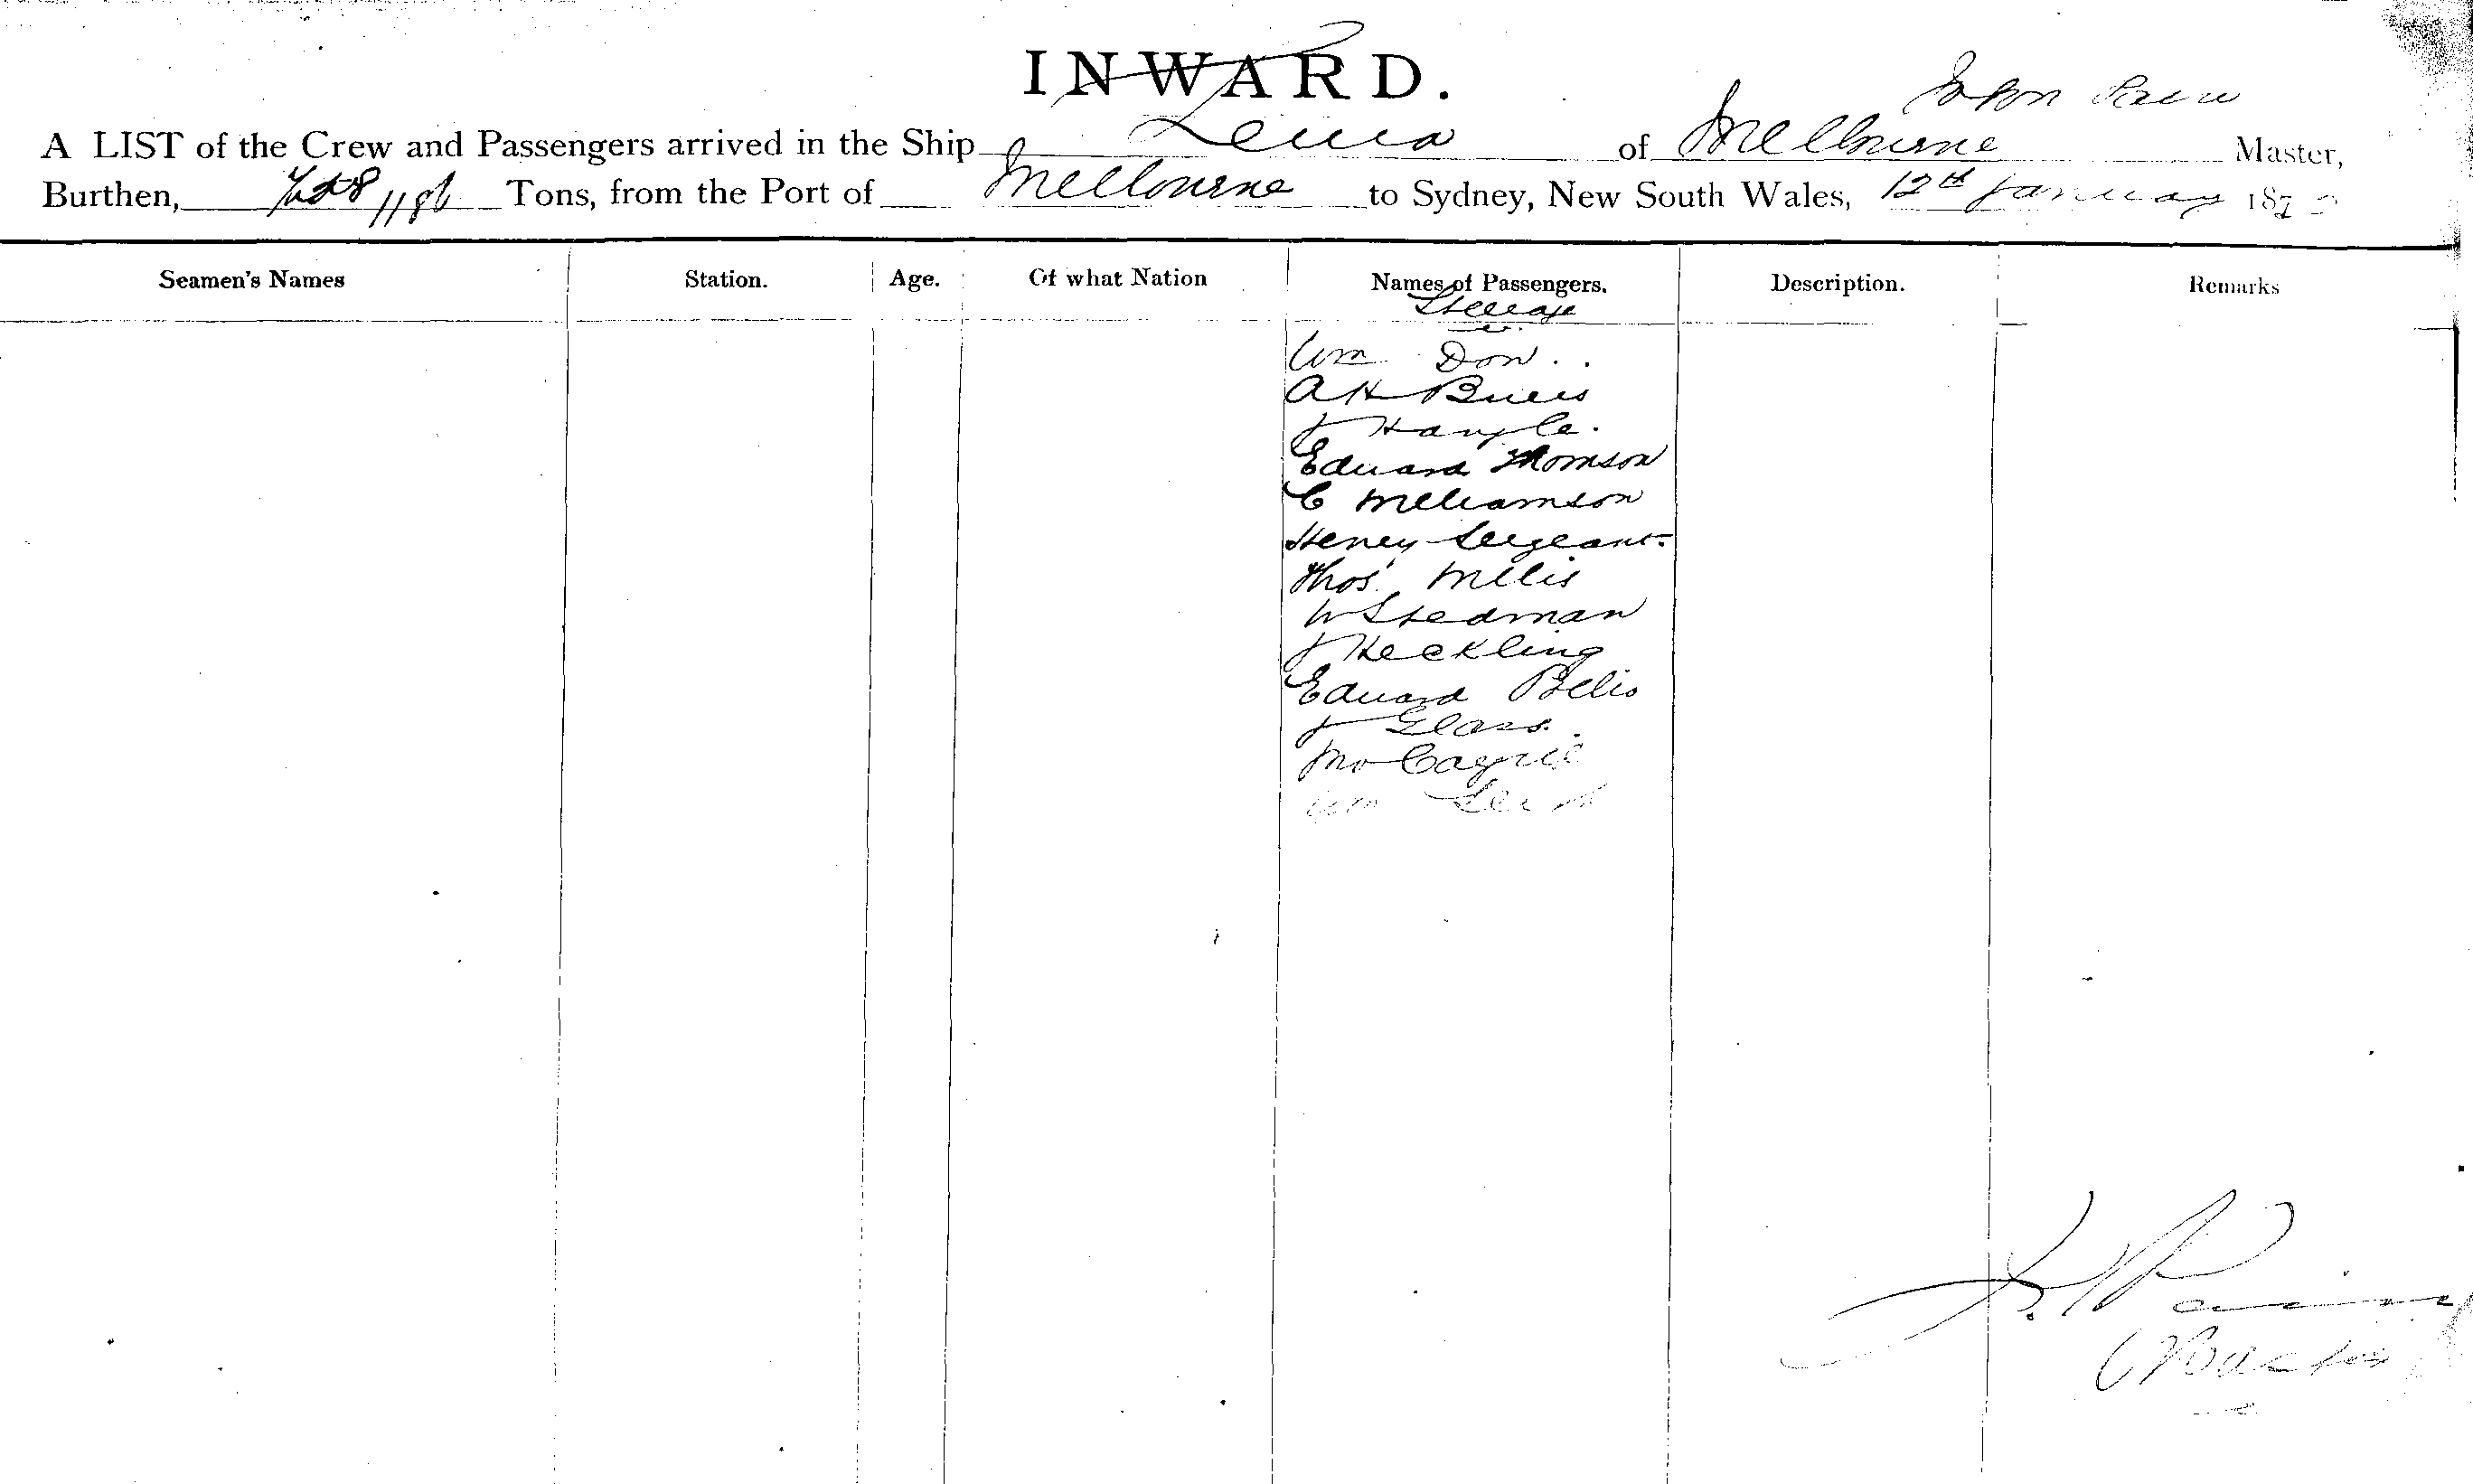 INWARD.
John
A LIST of the Crew and Passengers arrived in the Ship of Melbourne Master,
Burthen, Tons, from the Port of Melbourne to Sydney, New South Wales, 12th January 187
Seamen's Names Station. Age. Of what Nation Names of Passengers. Description. Remarks
Steerage
Wm Don
A H
J
Edward Thomson
C Williamson
Henry Sergeant
Thos. Willis
W Stedman
J Heckling
Edward Bellis
J Glass.
Wm